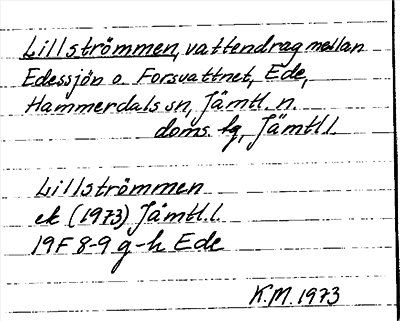 Lillströmmen, vattendrag mellan
Edessjön o. Forsvattnet, Ede,
Hammerdals sn, Jämtl. n.
doms. hg, Jämtl l.
Lillströmmen
ek (1973) Jämtl.l.
19F 8-9 g-h Ede
K.M. 1973